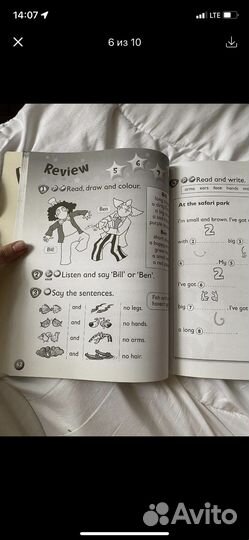 14:07
LTE
6 из 10
Review
5
6
7
1 Read, draw and colour.
Ben
Bill
2 Listen and say 'Bill' or 'Ben'.
3 Say the sentences.
and no legs.
and no hands.
and no arms.
and no hair.
Read and write.
arms ears face hands
At the safari park
I'm small and brown. I've got
2
with 2 big 3
4 My 5
I've got 6
big 7 I've got
a long 8
62
Avito